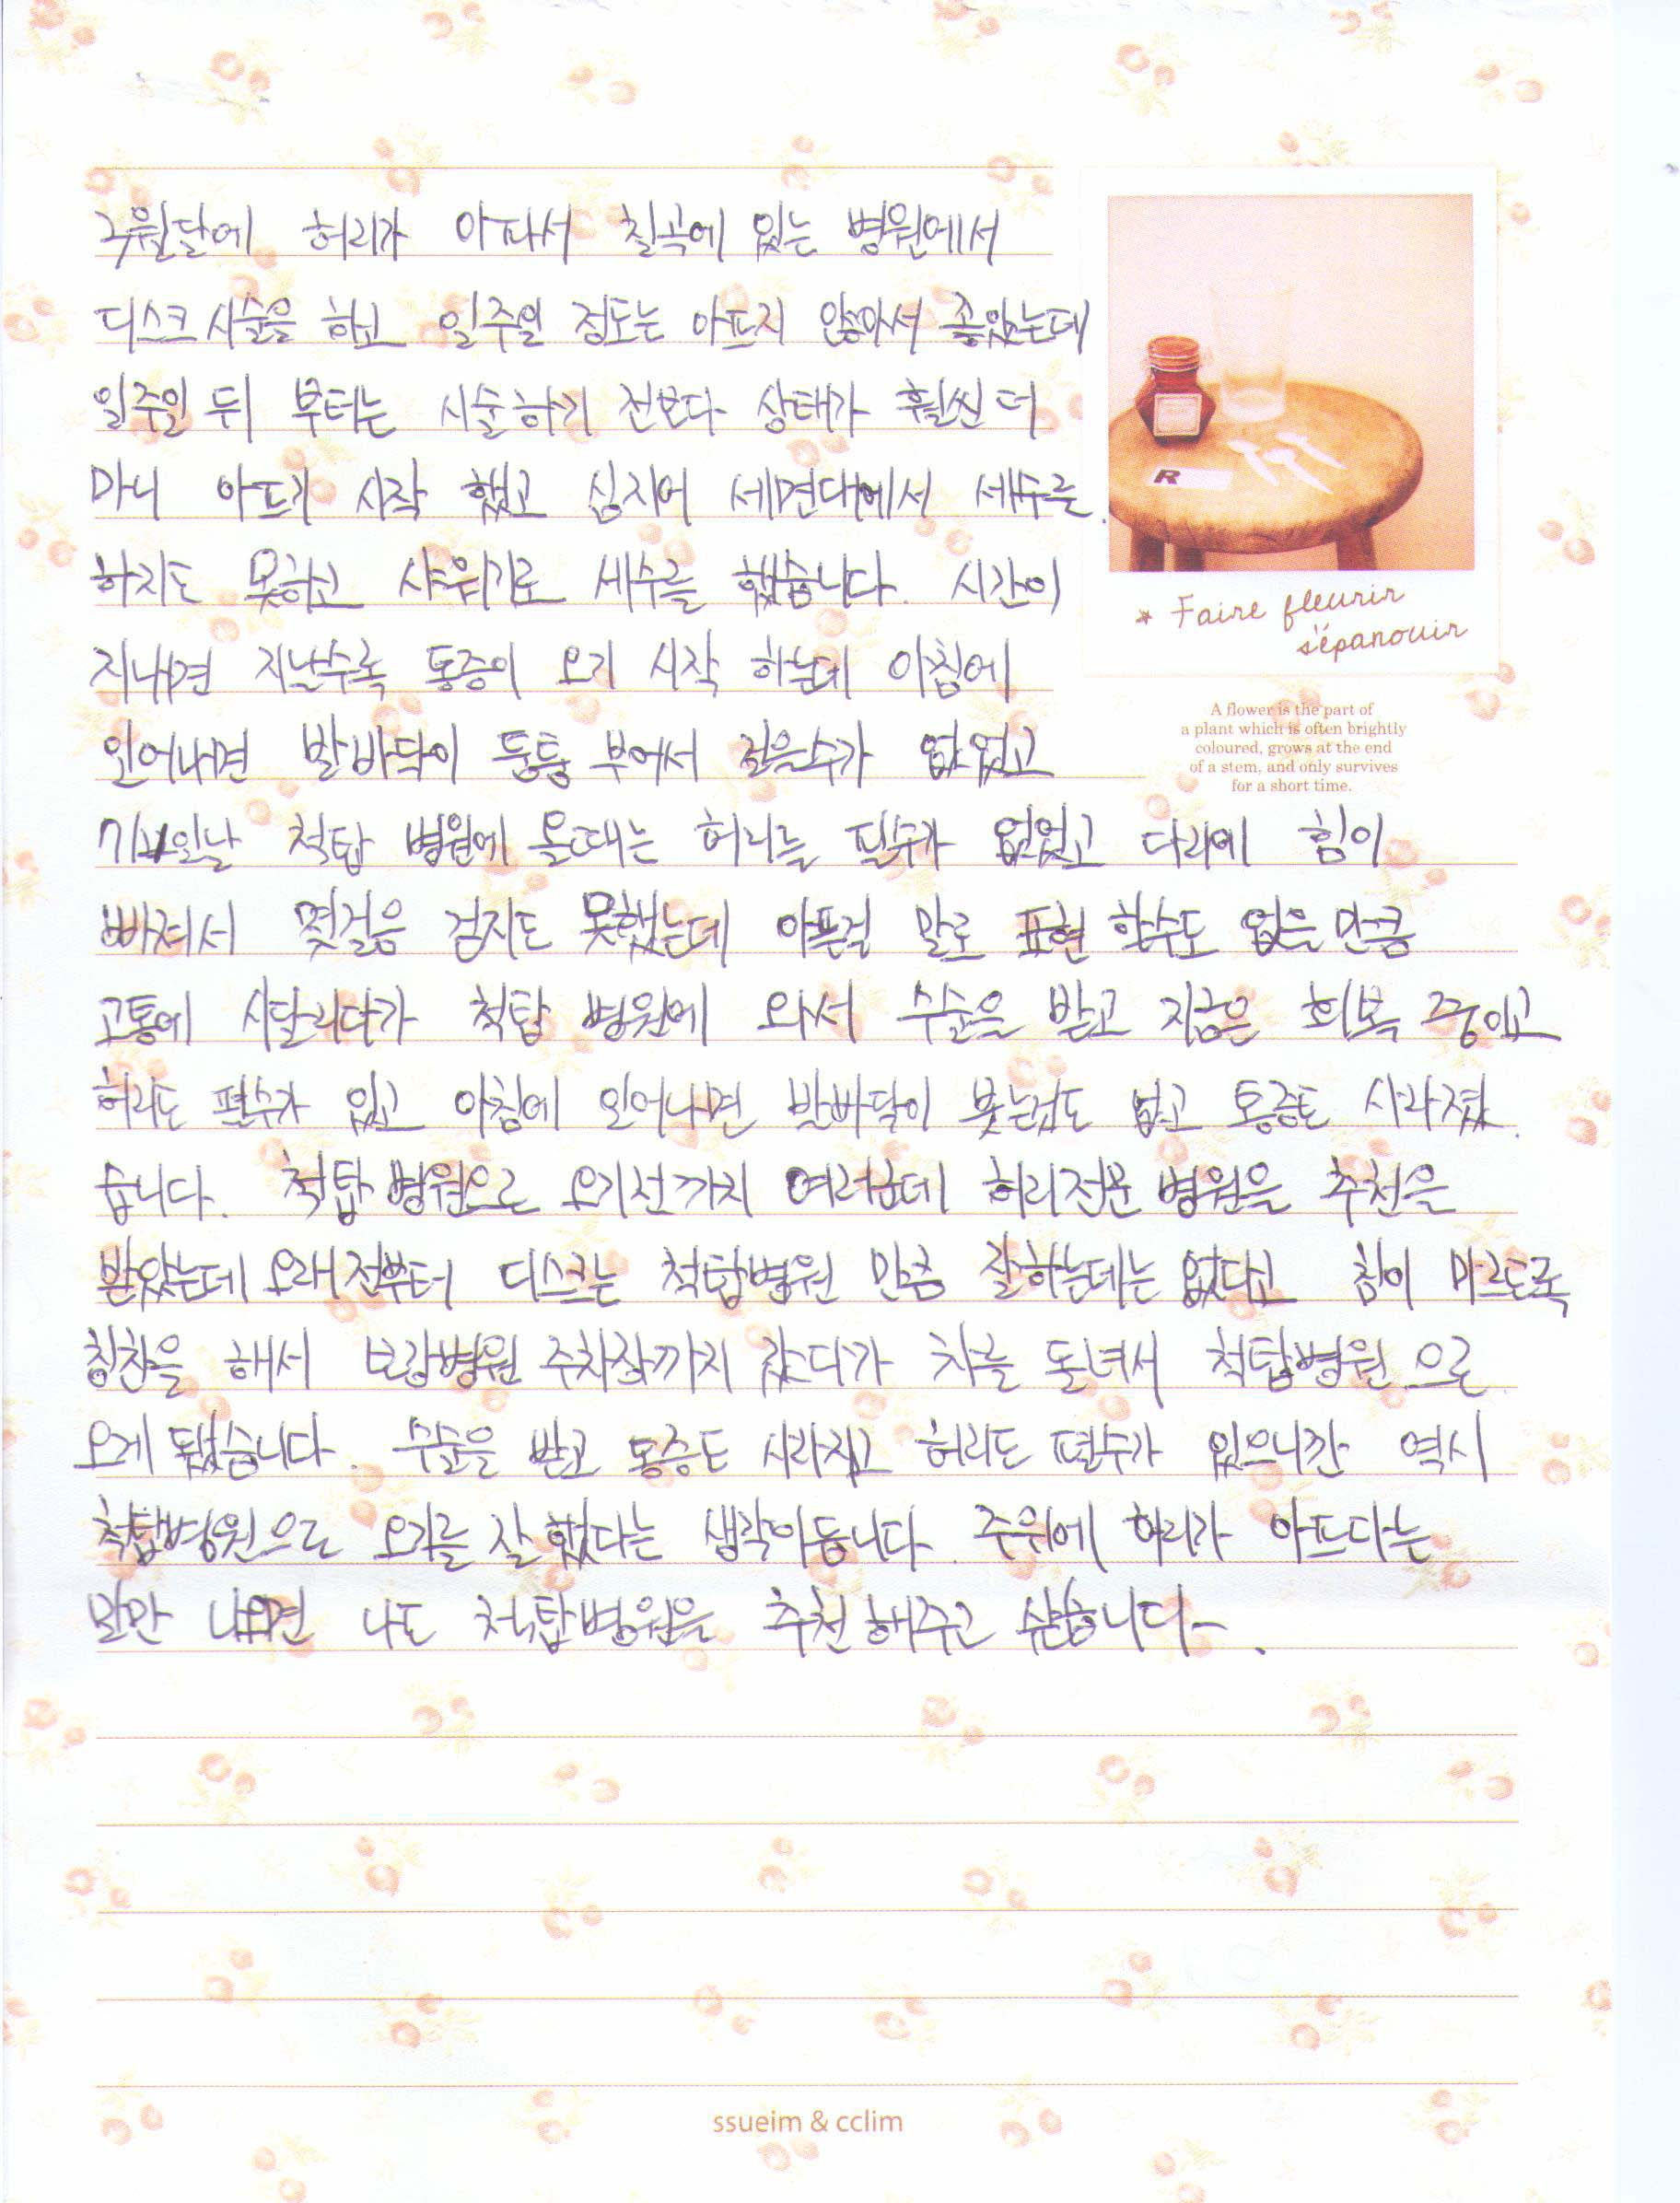 구월달에 허리가 아파서 칠곡에 있는 병원에서
디스크 시술을 하고 일주일 정도는 아프지 않아서 좋았는데
일주일 뒤 부터는 시술하기 전보다 상태가 훨씬 더
마니 아프기 시작 했고 심지어 세면대에서 세수를
하지도 못하고 샤워기로 세수를 했습니다. 시간이
지내면 지날수록 통증이 오기 시작 하는데 아침에
일어나면 발바닥이 퉁퉁 부어서 걸을수가 없었고
척탑 병원에 올때는 허리를 필수가 없었고 다리에 힘이
빠져서 쩟걸음 걷지도 못했는데 아픈걸 말로 표현 할수도 없을 만큼
고통에 시달리다가 척탑 병원에 와서 수술을 받고 지금은 회복 중이고
허리도 펼수가 있고 아침에 일어나면 발바닥이 붓는것도 없고 통증도 사라졌
습니다. 척탑 병원으로 오기전까지 여러군데 허리전문 병원을 추천을
받았는데 오래전부터 디스크는 척탑병원 만큼 잘하는데는 없다고 침이 마르도록
칭찬을 해서 보강병원 주차장까지 갔다가 차를 돌려서 척탑병원 으로
오게 됐습니다. 수술을 받고 통증도 사라지고 허리도 펼수가 있으니깐 역시
척탑병원으로 오기를 잘 했다는 생각이듭니다. 주위에 허리가 아프다는
말만 나오면 나도 척탑병원을 추천해주고 싶습니다~.
* Faire fleurir
s'épanouir
A flower is the part of
a plant which is often brightly
coloured, grows at the end
of a stem, and only survives
for a short time.
R
ssueim & cclim